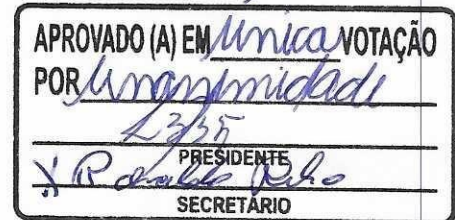 APROVADO (A) EM Unica VOTAÇÃO
POR Unanimidade
PRESIDENTE
SECRETÁRIO